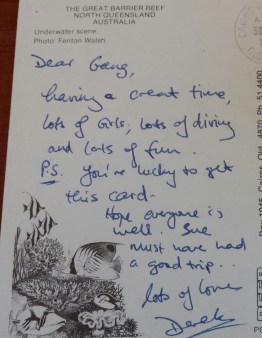 THE GREAT BARRIER REEF
NORTH QUEENSLAND
AUSTRALIA
Underwater scene.
Photo: Fenton Walsh
Dear Gang,
having a great time,
lots of Girls, lots of diving
and lots of fun.
P.S. You're lucky to get
this card.
Hope everyone is
well. Sue
must have had
a good trip..
lots of love
Derek
4870 Ph. 51 4400